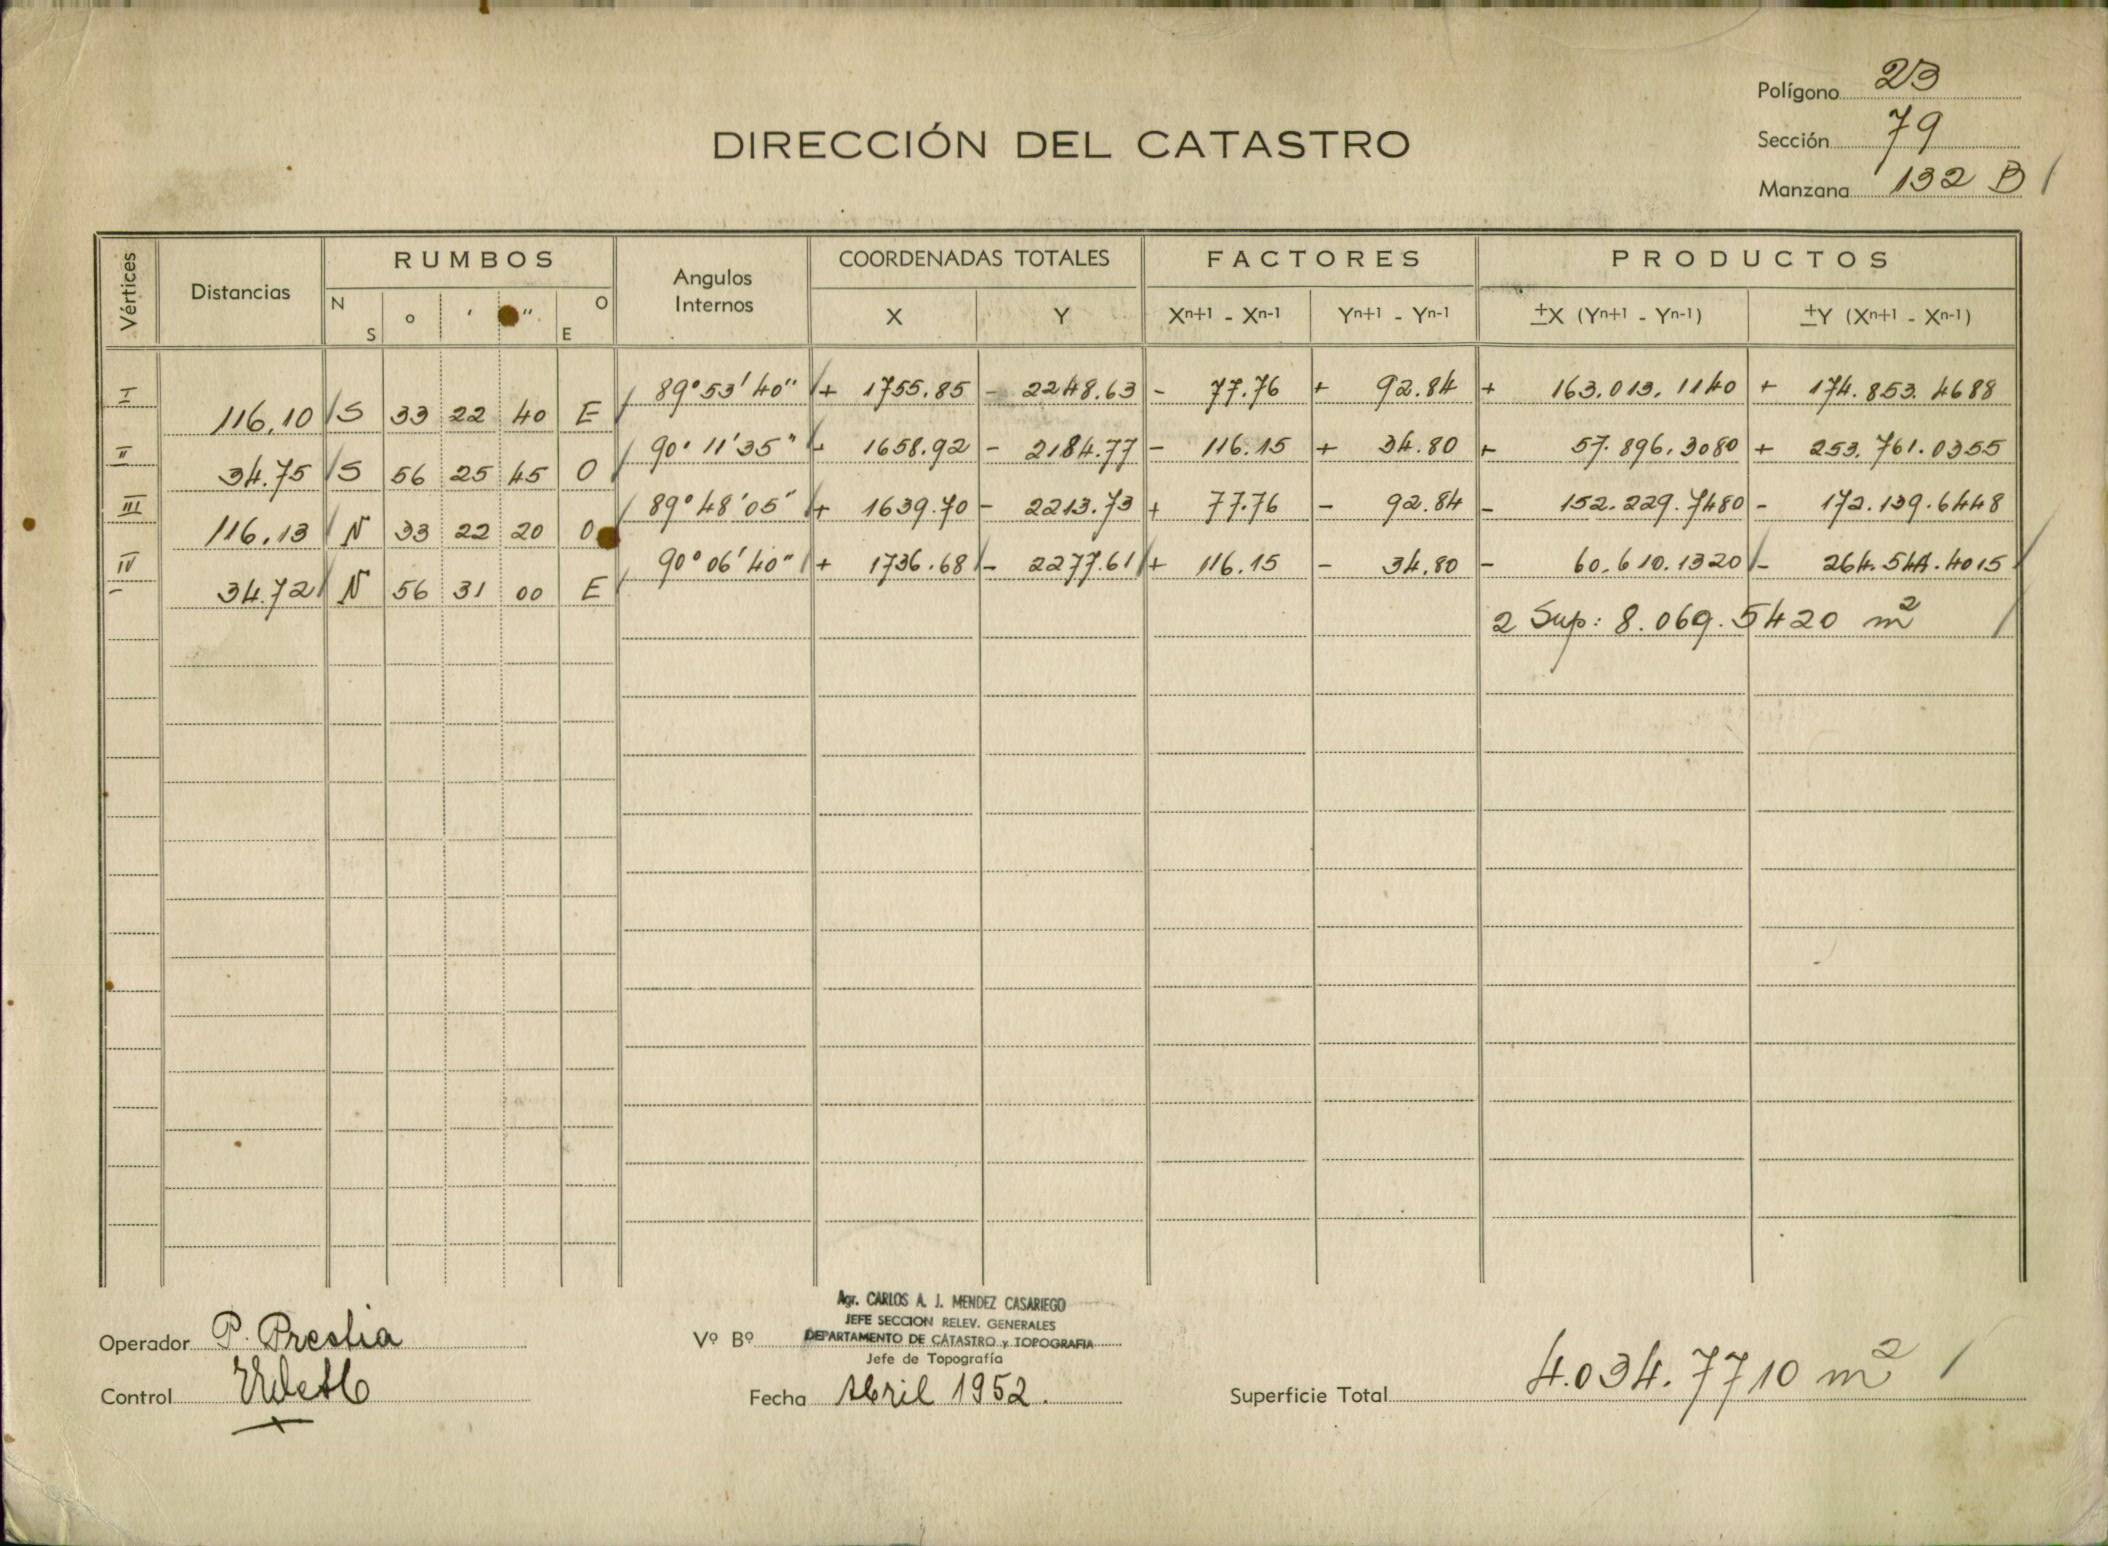 Polígono 23
DIRECCIÓN DEL CATASTRO
Sección 79
Manzana 132 B
Vértices Distancias RUMBOS Angulos Internos COORDENADAS TOTALES FACTORES PRODUCTOS
N S o ' " O E X Y Xn+1 - Xn-1 Yn+1 - Yn-1 ±X (Yn+1 - Yn-1) ±Y (Xn+1 - Xn-1)
I 89°53'40" + 1755.85 - 2248.63 - 77.76 + 92.84 + 163.013.1140 + 174.853.4688
116,10 S 33 22 40 E
II 90°11'35" + 1658.92 - 2184.77 - 116.15 + 34.80 + 57.896.3080 + 253.761.0355
34.75 S 56 25 45 O
III 89°48'05" + 1639.70 - 2213.73 + 77.76 - 92.84 - 152.229.7480 - 172.139.6448
116.13 N 33 22 20 O
IV 90°06'40" + 1736.68 - 2277.61 + 116.15 - 34.80 - 60.610.1320 - 264.544.4015
34.72 N 56 31 00 E
2 Sup: 8.069.5420 m²
Agr. CARLOS A. J. MENDEZ CASARIEGO
JEFE SECCION RELEV. GENERALES
Operador P. Preslia Vº Bº DEPARTAMENTO DE CATASTRO y TOPOGRAFIA
Jefe de Topografía
Control
Fecha Abril 1952.
Superficie Total 4.034.7710 m²